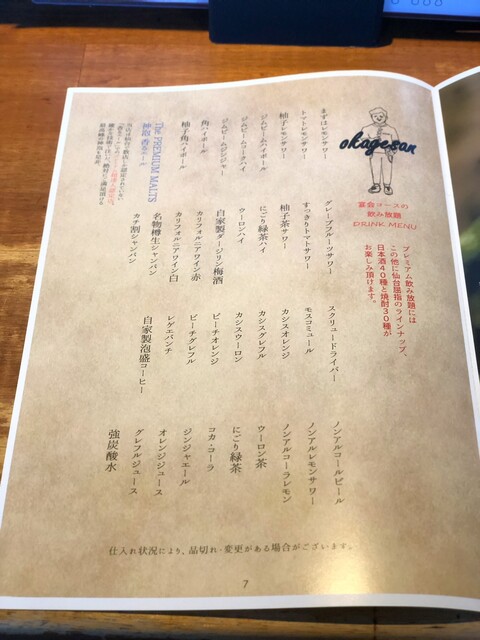 okagesan
宴会コースの
飲み放題
DRINK MENU
プレミアム飲み放題には
この他に仙台屈指のラインナップ、
日本酒40種と焼酎30種が
お楽しみ頂けます。
まずはレモンサワー
トマトレモンサワー
柚子レモンサワー
ジムビームハイボール
ジムビームコークハイ
ジムビームジンジャー
角ハイボール
柚子角ハイボール
The PREMIUM MALTS
神取 香るエール
グレープフルーツサワー
すっきりトマトサワー
柚子茶サワー
にごり緑茶ハイ
ウーロンハイ
自家製ダージリン梅酒
カリフォルニアワイン赤
カリフォルニアワイン白
名物樽生シャンパン
カチ割シャンパン
スクリュードライバー
モスコミュール
カシスオレンジ
カシスグレフル
カシスウーロン
ピーチオレンジ
ピーチグレフル
レゲエパンチ
自家製泡盛コーヒー
ノンアルコールビール
ノンアルレモンサワー
ノンアルコーラレモン
ウーロン茶
にごり緑茶
コカ・コーラ
ジンジャエール
オレンジジュース
グレフルジュース
強炭酸水
仕入れ状況により、品切れ・変更がある場合がございます。
7